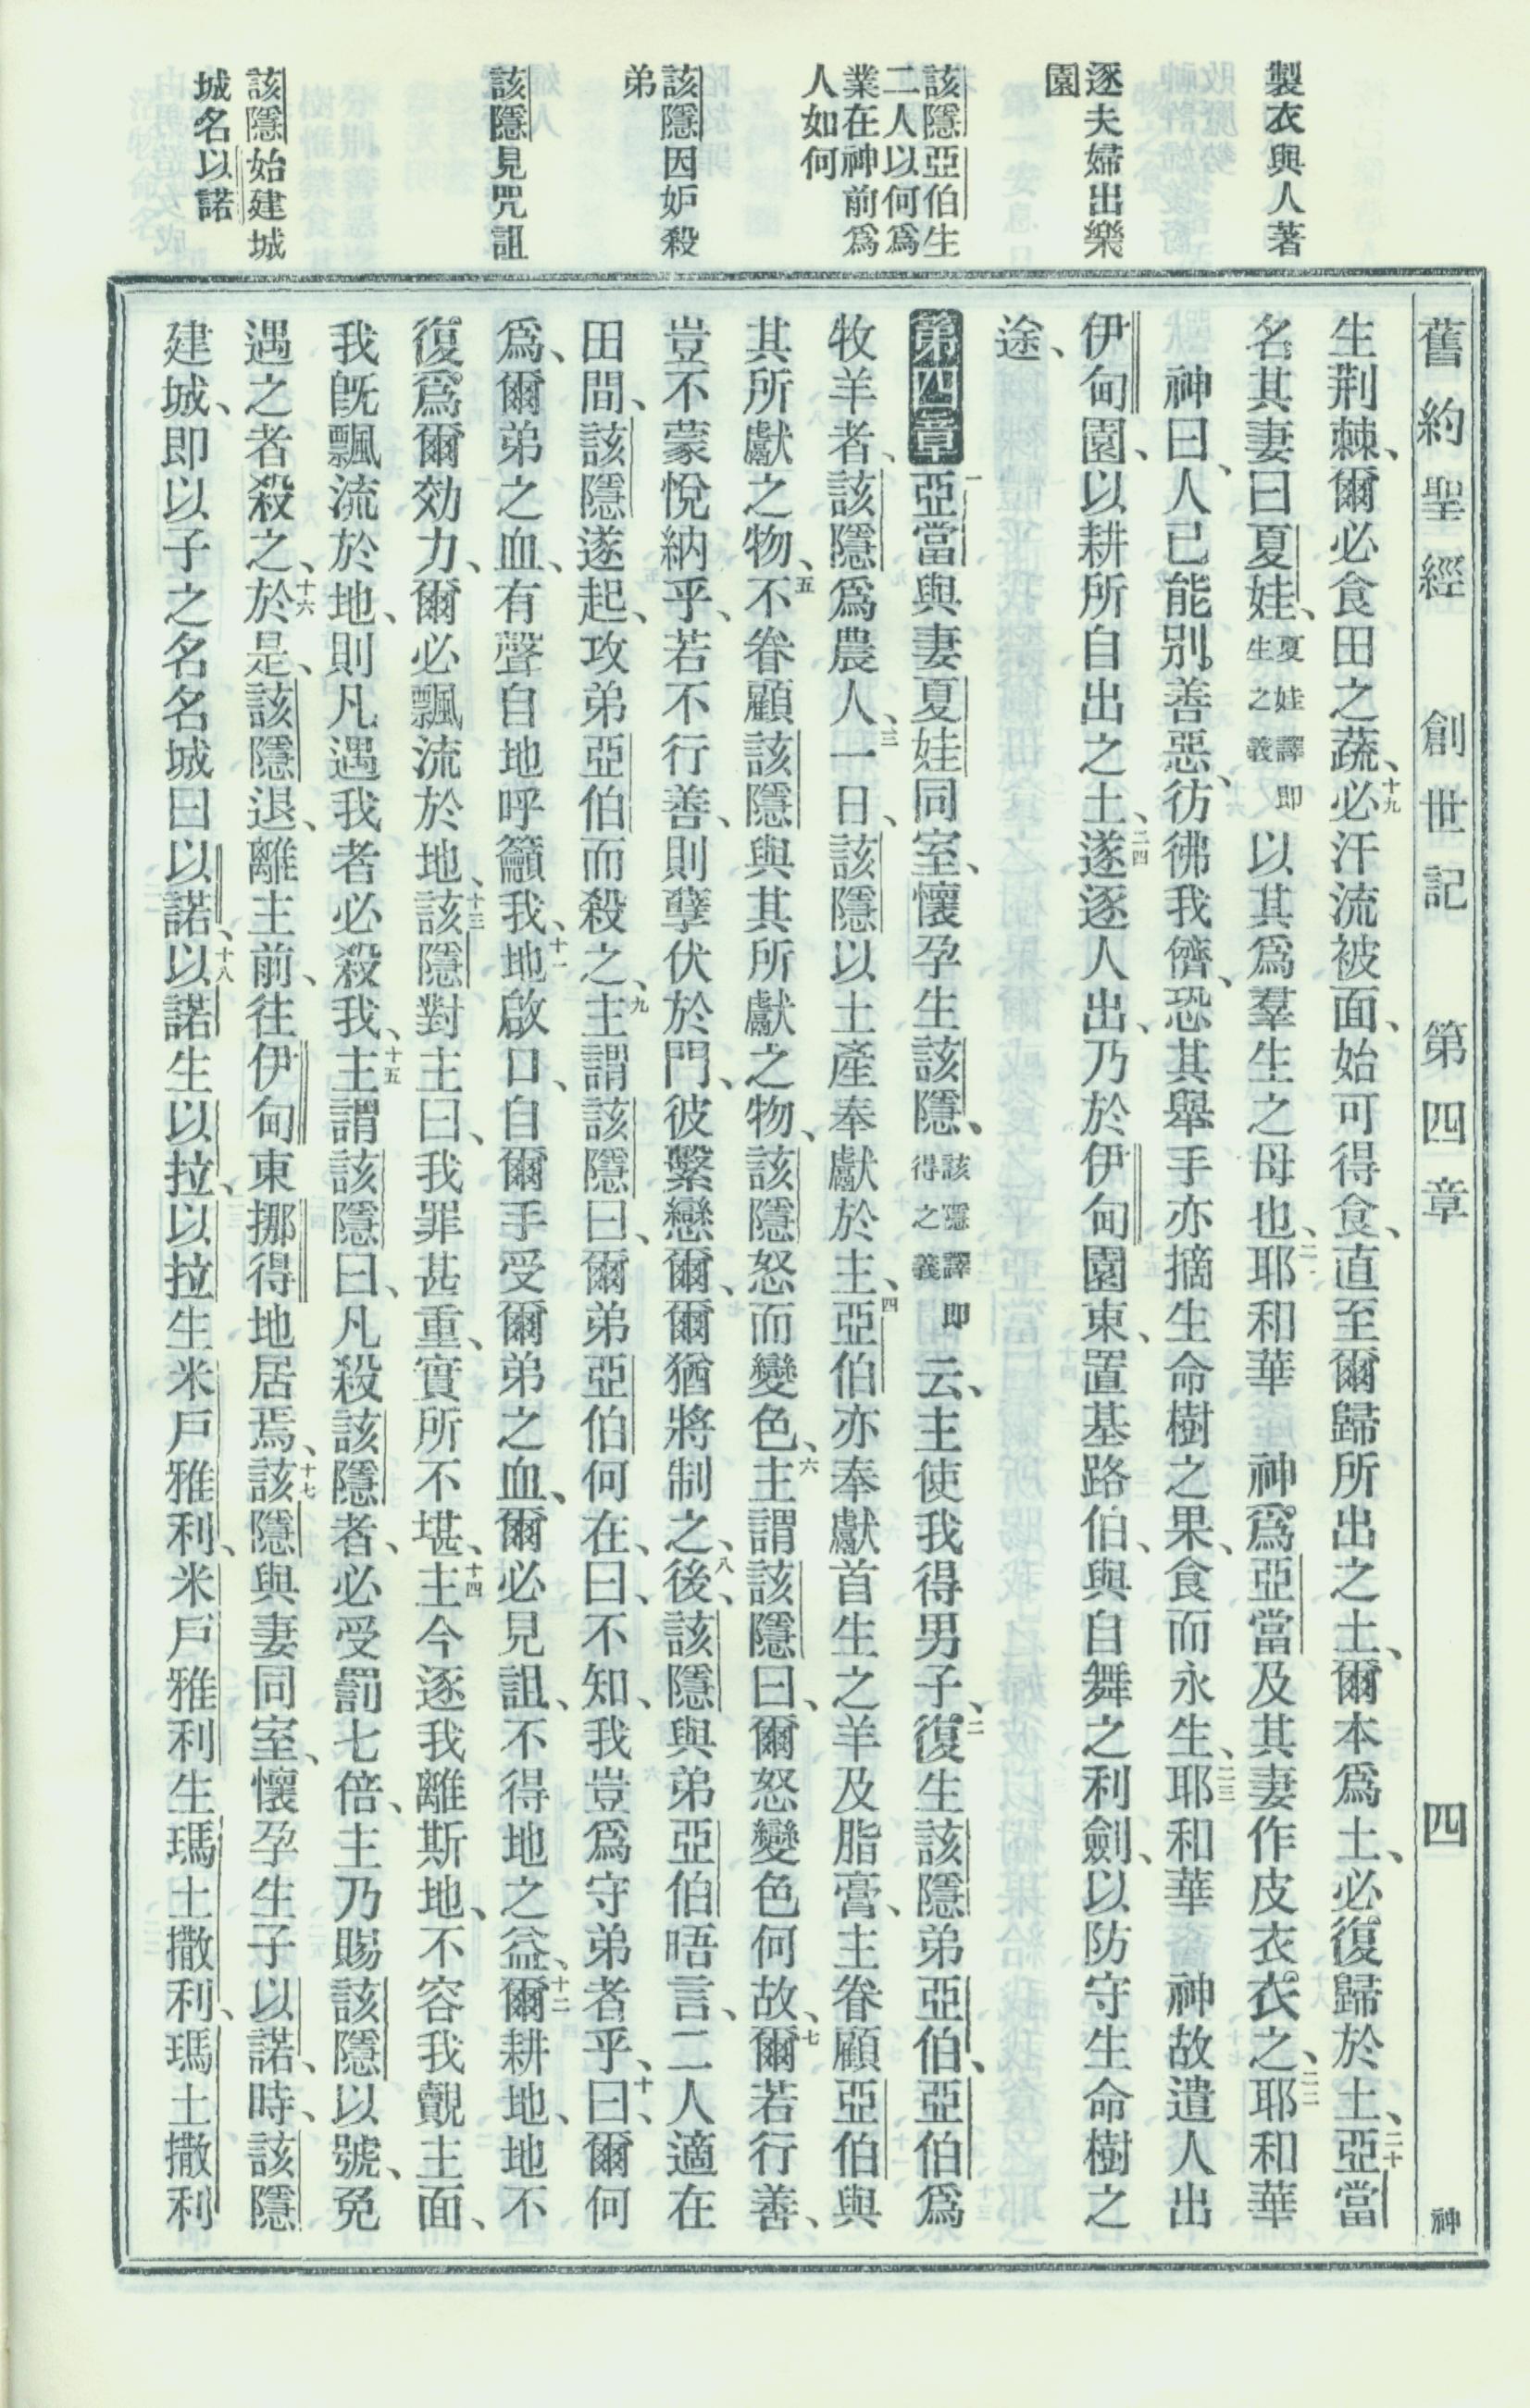 舊約聖經　創世記　第四章　四　神
製衣與人著
逐夫婦出樂
園
該隱亞伯生
二人以何爲
業在神前爲
人如何
該隱因妒殺
弟
該隱見咒詛
該隱始建城
城名以諾
生荆棘、爾必食田之蔬、十九必汗流被面、始可得食、直至爾歸所出之土、爾本爲土、必復歸於土、二十亞當
名其妻曰夏娃、夏娃譯即生之義以其爲羣生之母也、二一耶和華　神爲亞當及其妻作皮衣衣之、二二耶和華
神曰、人已能別善惡、彷彿我儕、恐其舉手亦摘生命樹之果、食而永生、二三耶和華　神故遣人出
伊甸園、以耕所自出之土、二四遂逐人出、乃於伊甸園東、置基路伯、與自舞之利劍、以防守生命樹之
途、
第四章一亞當與妻夏娃同室、懷孕生該隱、該隱譯即得之義云、主使我得男子、二復生該隱弟亞伯、亞伯爲
牧羊者、該隱爲農人、三一日、該隱以土產奉獻於主、四亞伯亦奉獻首生之羊及脂膏、主眷顧亞伯與
其所獻之物、五不眷顧該隱與其所獻之物、該隱怒而變色、六主謂該隱曰、爾怒變色何故、七爾若行善、
豈不蒙悅納乎、若不行善、則孽伏於門、彼繫戀爾、爾猶將制之、八後、該隱與弟亞伯晤言、二人適在
田間、該隱遂起、攻弟亞伯而殺之、九主謂該隱曰、爾弟亞伯何在、曰、不知、我豈爲守弟者乎、十曰、爾何
爲、爾弟之血、有聲自地呼籲我、十一地啟口、自爾手受爾弟之血、爾必見詛、不得地之益、十二爾耕地、地不
復爲爾効力、爾必飄流於地、十三該隱對主曰、我罪甚重、實所不堪、十四主今逐我離斯地、不容我覿主面、
我旣飄流於地、則凡遇我者必殺我、十五主謂該隱曰、凡殺該隱者、必受罰七倍、主乃賜該隱以號、免
遇之者殺之、十六於是、該隱退、離主前、往伊甸東挪得地居焉、十七該隱與妻同室、懷孕生子以諾、時、該隱
建城、即以子之名名城曰以諾、十八以諾生以拉、以拉生米戶雅利、米戶雅利生瑪土撒利、瑪土撒利